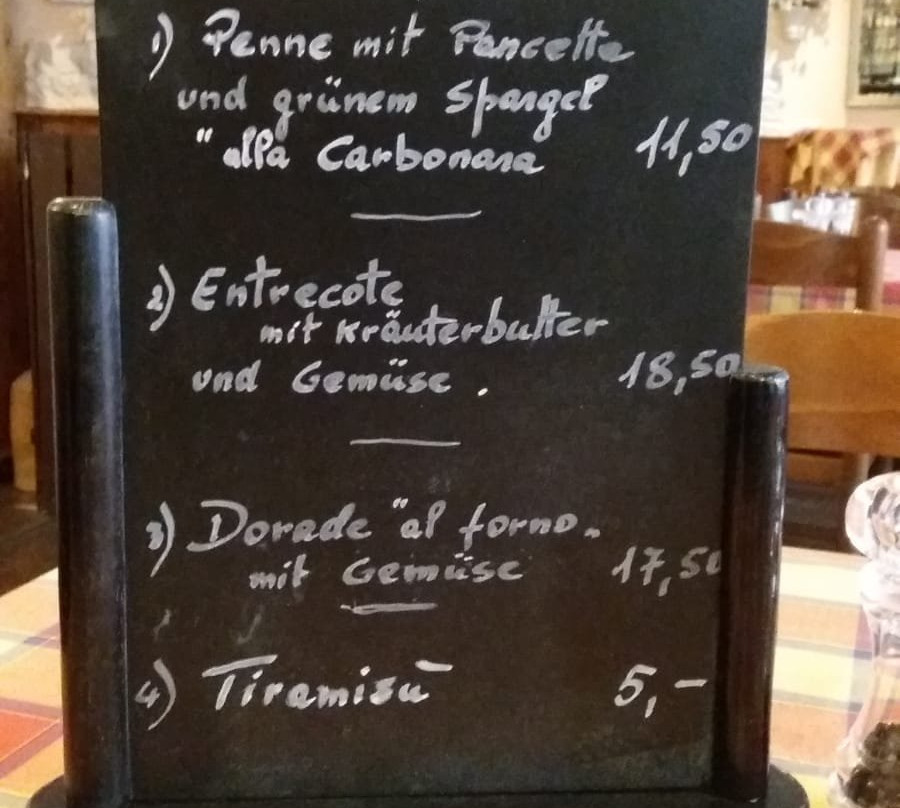 1) Penne mit Pancetta
und grünem Spargel
"alla Carbonara 11,50
2) Entrecote
mit Kräuterbutter
und Gemüse. 18,50
3) Dorade "al forno.
mit Gemüse 17,50
4) Tiramisu 5,-